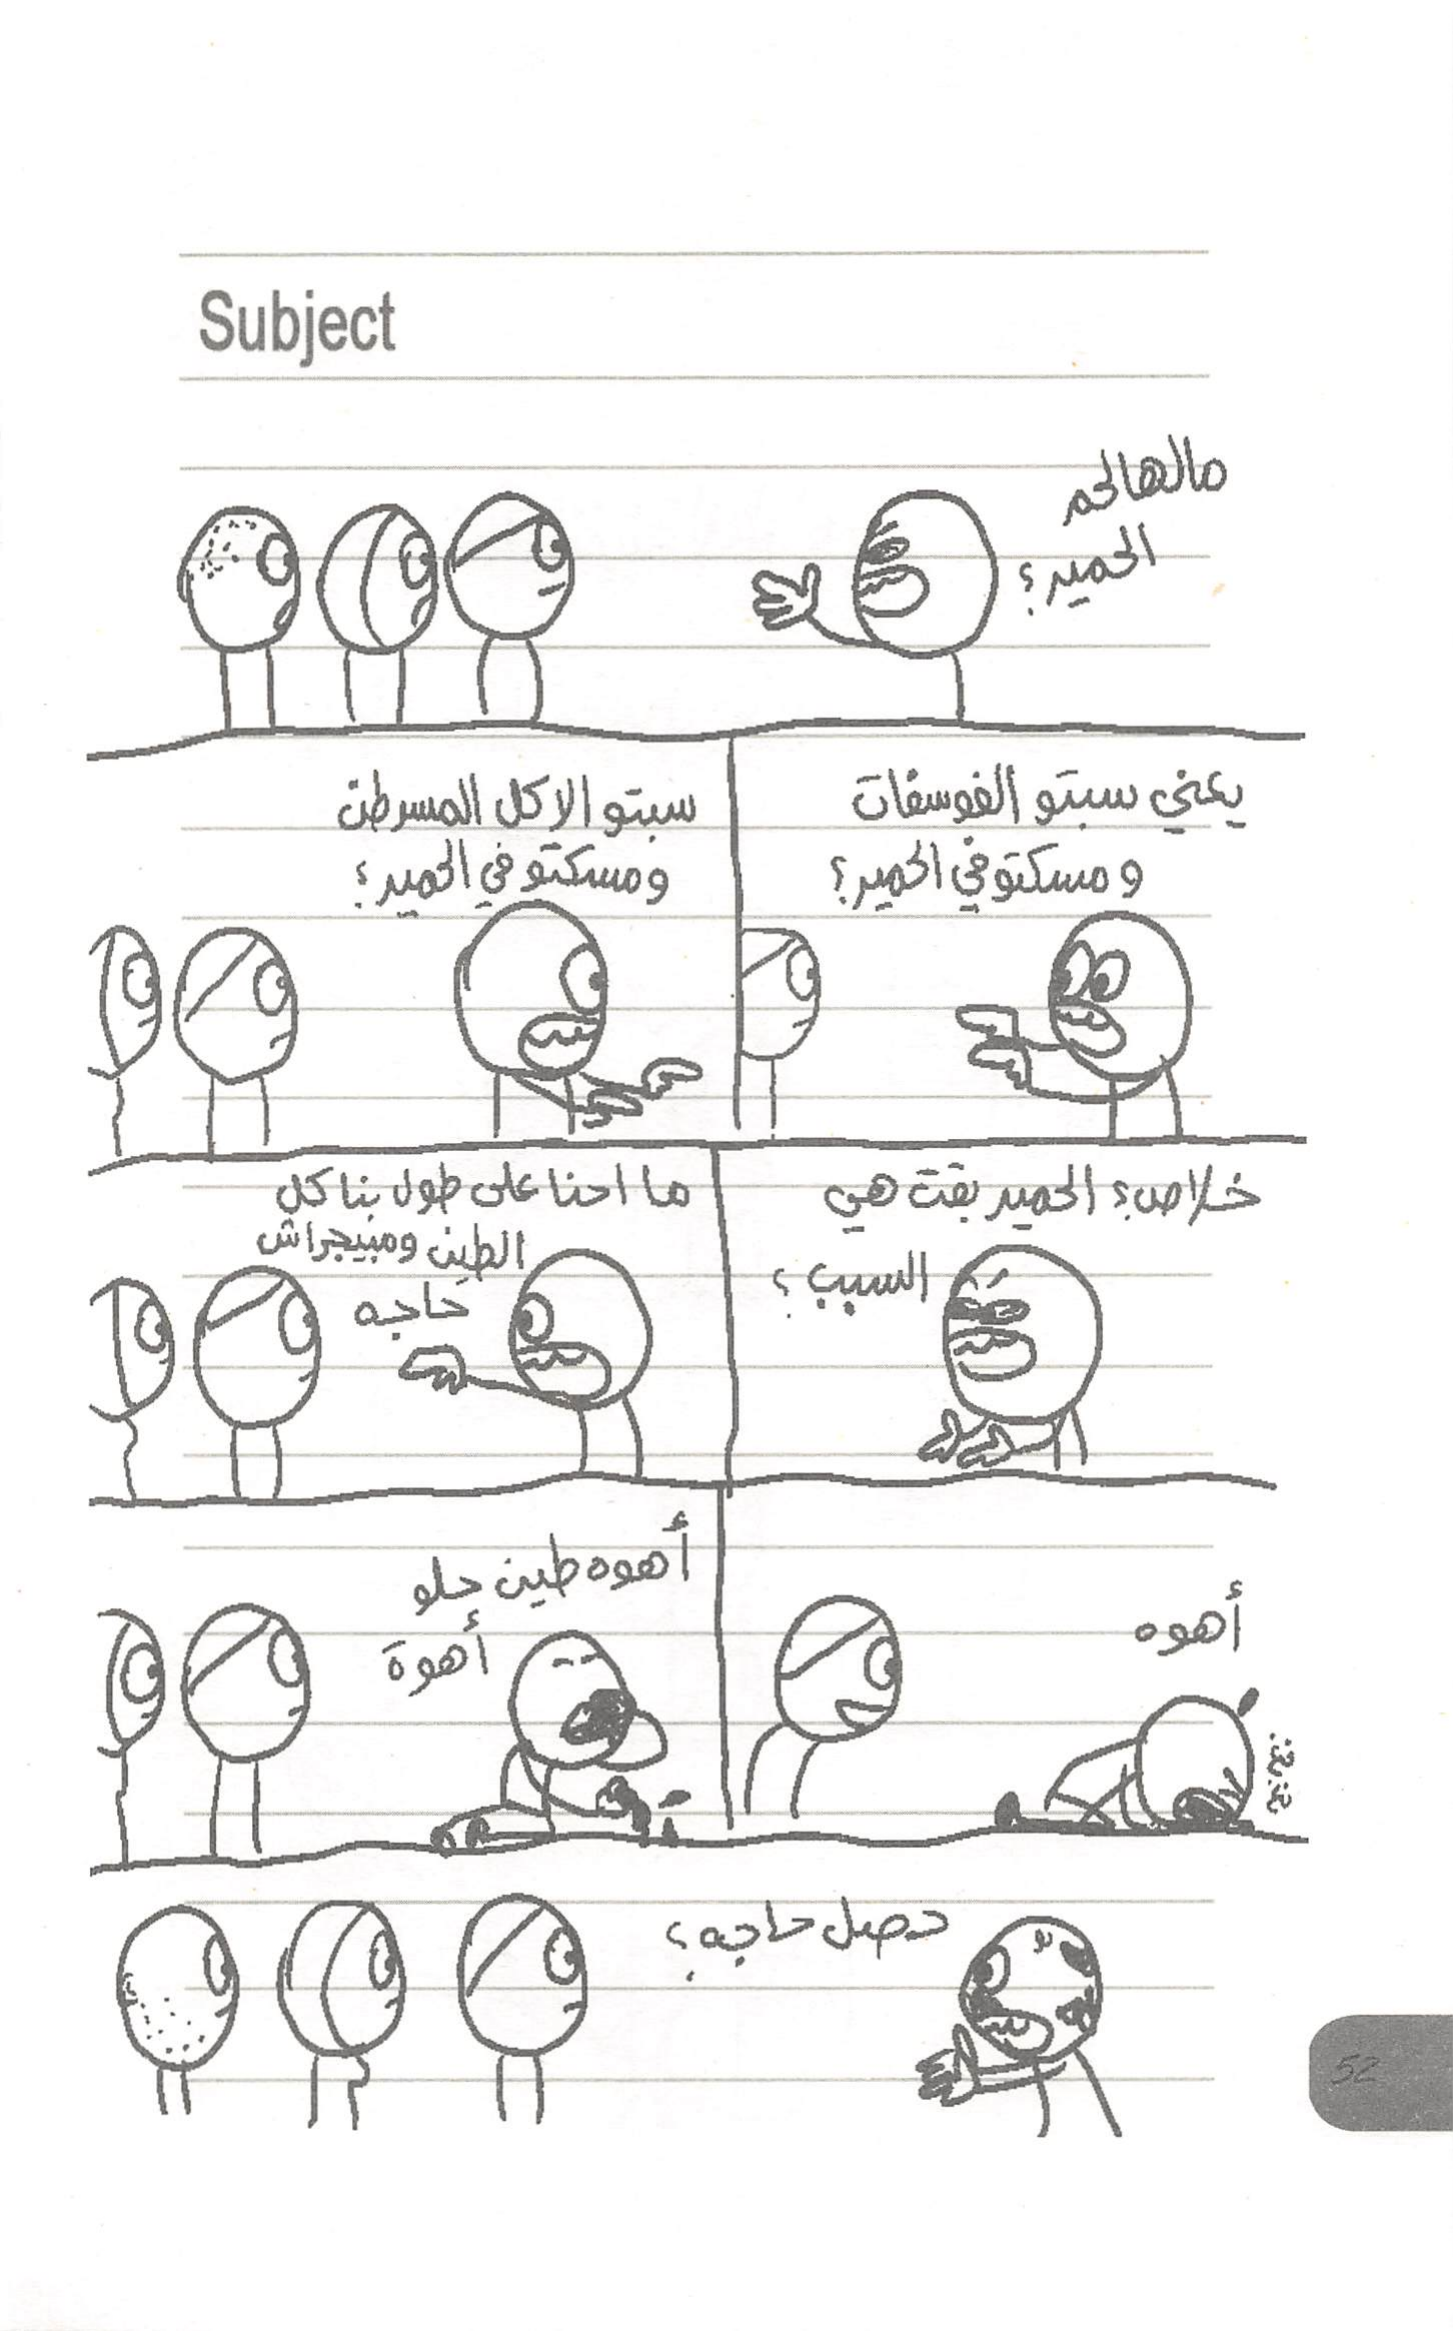 Subject
مالها لحم
الحمير؟
يعني سبتو الفوسفات
ومسكتو في الحمير؟
سبتو الاكل المسرطن
ومسكتو في الحمير؟
خلاص؟ الحمير بقت هي
السبب؟
ما احنا على طول بناكل
الطين ومبيجراش
حاجه
أهوه
أهوه طين حلو
أهوة
حصل حاجه؟
52